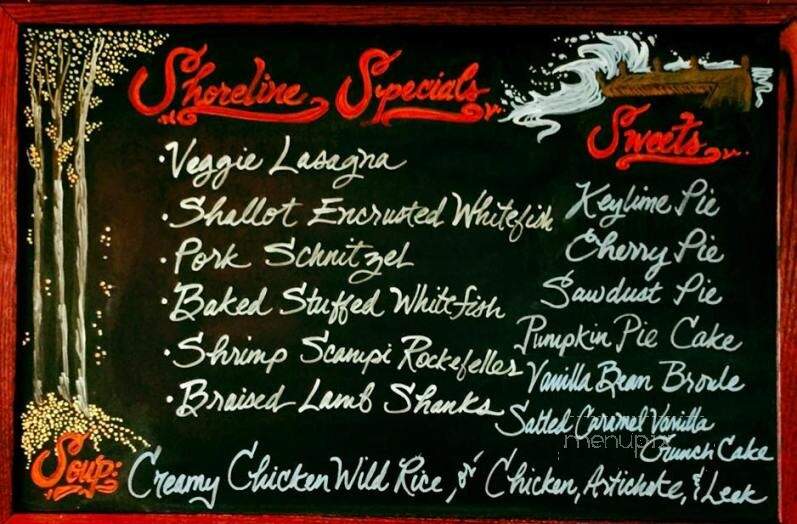 Shoreline Specials
• Veggie Lasagna
• Shallot Encrusted Whitefish
• Pork Schnitzel
• Baked Stuffed Whitefish
• Shrimp Scampi Rockefeller
• Braised Lamb Shanks
Sweets
Keylime Pie
Cherry Pie
Sawdust Pie
Pumpkin Pie Cake
Vanilla Bean Broule
Salted Caramel Vanilla
Crunch Cake
Soup:
Creamy Chicken Wild Rice, or Chicken, Artichoke, & Leek
menupix